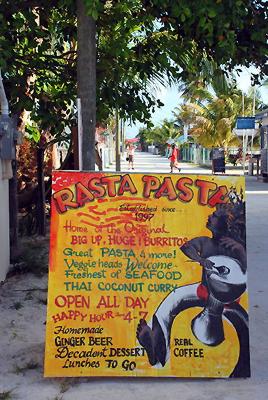 RASTA PASTA
Established since...
1997
Home of the Original
BIG UP, HUGE! BURRITOS
Great PASTA & more!
Veggie heads Welcome
Freshest of SEAFOOD
THAI COCONUT CURRY
OPEN ALL DAY
HAPPY HOUR 4-7
Homemade
GINGER BEER
Decadent DESSERT
Lunches TO GO
REAL
COFFEE